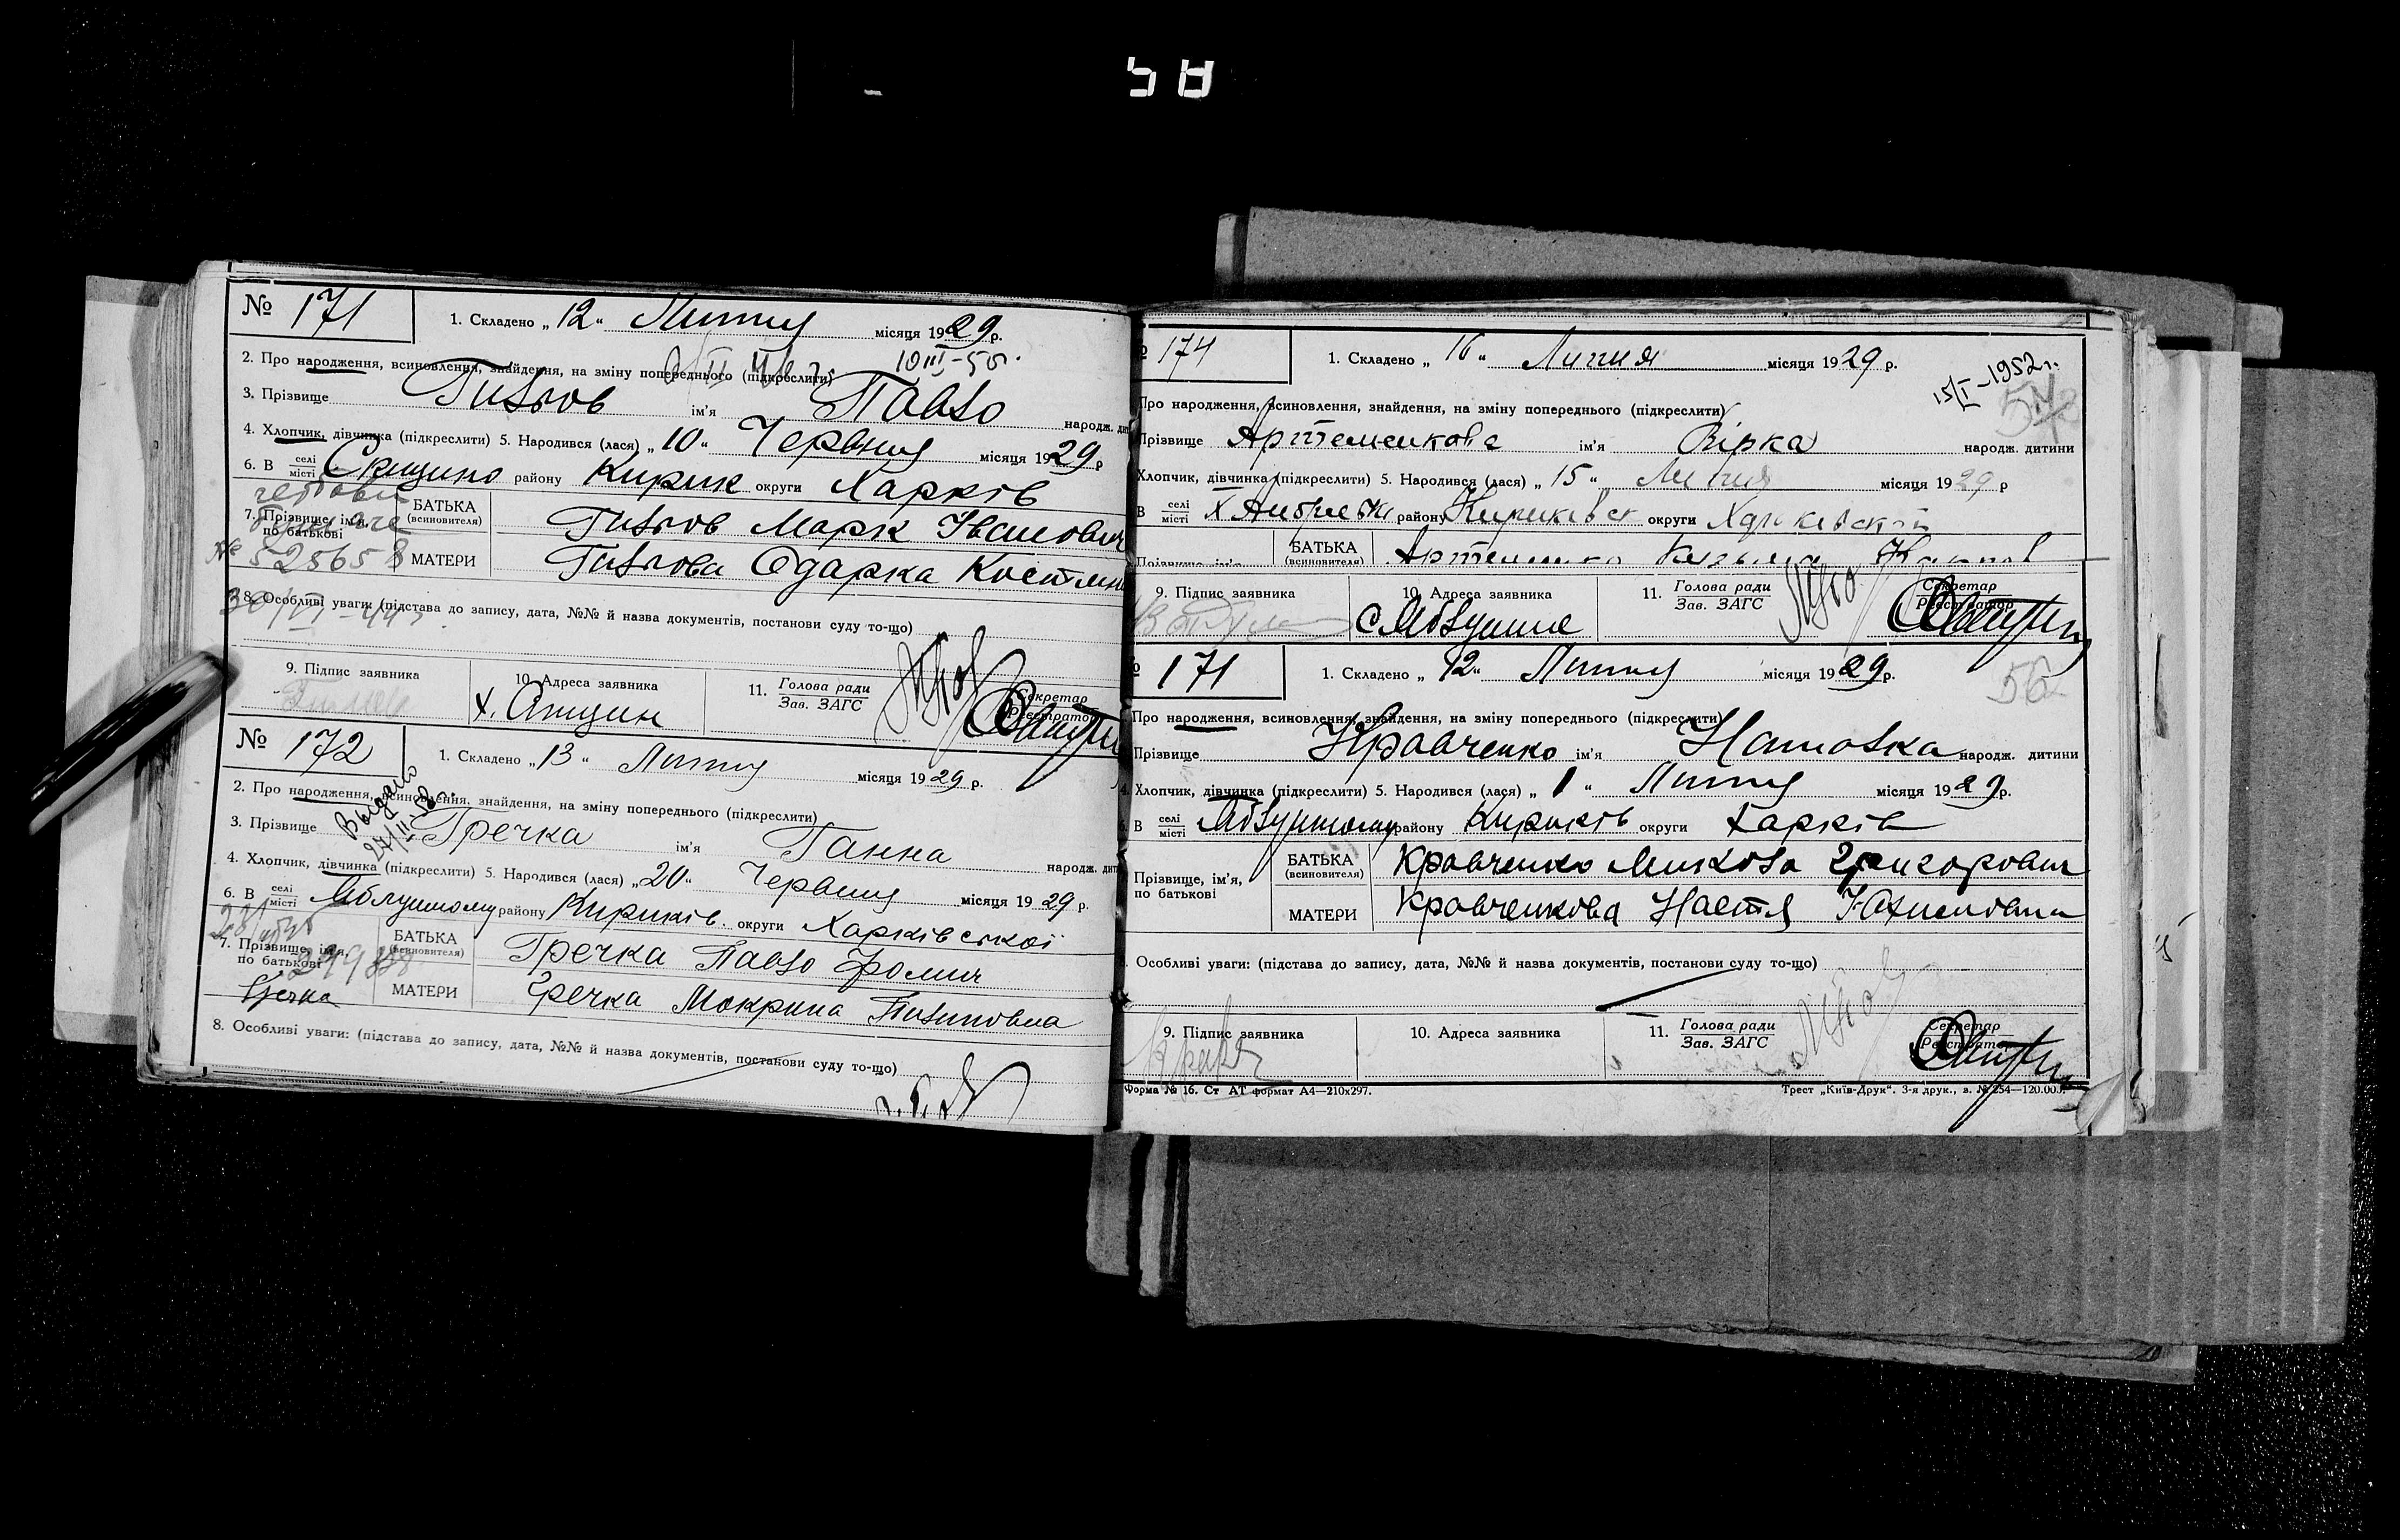 58
№ 171
1. Складено „ 12 “ Липня місяця 1929 р.
2. Про народження, всиновлення, знайдення, на зміну попереднього (підкреслити)
10 III-55.
3. Прізвище ім'я Павло народж.
4. Хлопчик, дівчинка (підкреслити) 5. Народився (лася) „ 10 “ Червня місяця 1929 р
6. В селі місті району Кирик округи Харків
7. Прізвище, ім'я, по батькові
БАТЬКА (всиновителя) Марк Іванович
№ 525658
МАТЕРИ Одарка
8. Особливі уваги: (підстава до запису, дата, №№ й назва документів, постанови суду то-що)
9. Підпис заявника
10. Адреса заявника х.
11. Голова ради Зав. ЗАГС
Секретар Реєстратор
№ 172
1. Складено „ 13 “ Липня місяця 1929 р.
2. Про народження, всиновлення, знайдення, на зміну попереднього (підкреслити)
Выдано
3. Прізвище Гречка ім'я Ганна народж.
4. Хлопчик, дівчинка (підкреслити) 5. Народився (лася) „ 20 “ Червня місяця 1929 р.
6. В селі місті Яблушному району Кириків. округи Харківської
7. Прізвище, ім'я, по батькові
БАТЬКА (всиновителя) Гречка Павло Фомич
Гречка
МАТЕРИ Гречка Мокрина Пилиповна
8. Особливі уваги: (підстава до запису, дата, №№ й назва документів, постанови суду то-що)
174
1. Складено „ 16 “ Липня місяця 1929 р.
15/I-1952 г.
57
Про народження, всиновлення, знайдення, на зміну попереднього (підкреслити)
Прізвище Артеменкова ім'я Вірка народж. дитини
Хлопчик, дівчинка (підкреслити) 5. Народився (лася) „ 15 “ Липня місяця 1929 р
В селі місті району округи
Прізвище, ім'я,
БАТЬКА (всиновителя) Артеменко Кузьма
9. Підпис заявника
10. Адреса заявника с Яблушне
11. Голова ради Зав. ЗАГС
Секретар Реєстратор
171
1. Складено „ 12 “ Липня місяця 1929 р.
56
Про народження, всиновлення, знайдення, на зміну попереднього (підкреслити)
Прізвище Кравченко ім'я Наталка народж. дитини
4. Хлопчик, дівчинка (підкреслити) 5. Народився (лася) „ 1 “ Липня місяця 1929 р.
6. В селі місті Яблушному району Кириків округи Харків
Прізвище, ім'я, по батькові
БАТЬКА (всиновителя) Кравченко Микола Григорович
МАТЕРИ Кравченкова Настя
Особливі уваги: (підстава до запису, дата, №№ й назва документів, постанови суду то-що)
9. Підпис заявника
10. Адреса заявника
11. Голова ради Зав. ЗАГС
Секретар Реєстратор
Форма № 16. Ст АТ формат А4—210х297.
Трест „Київ-Друк“. 3-я друк., з. № 254—120.000.